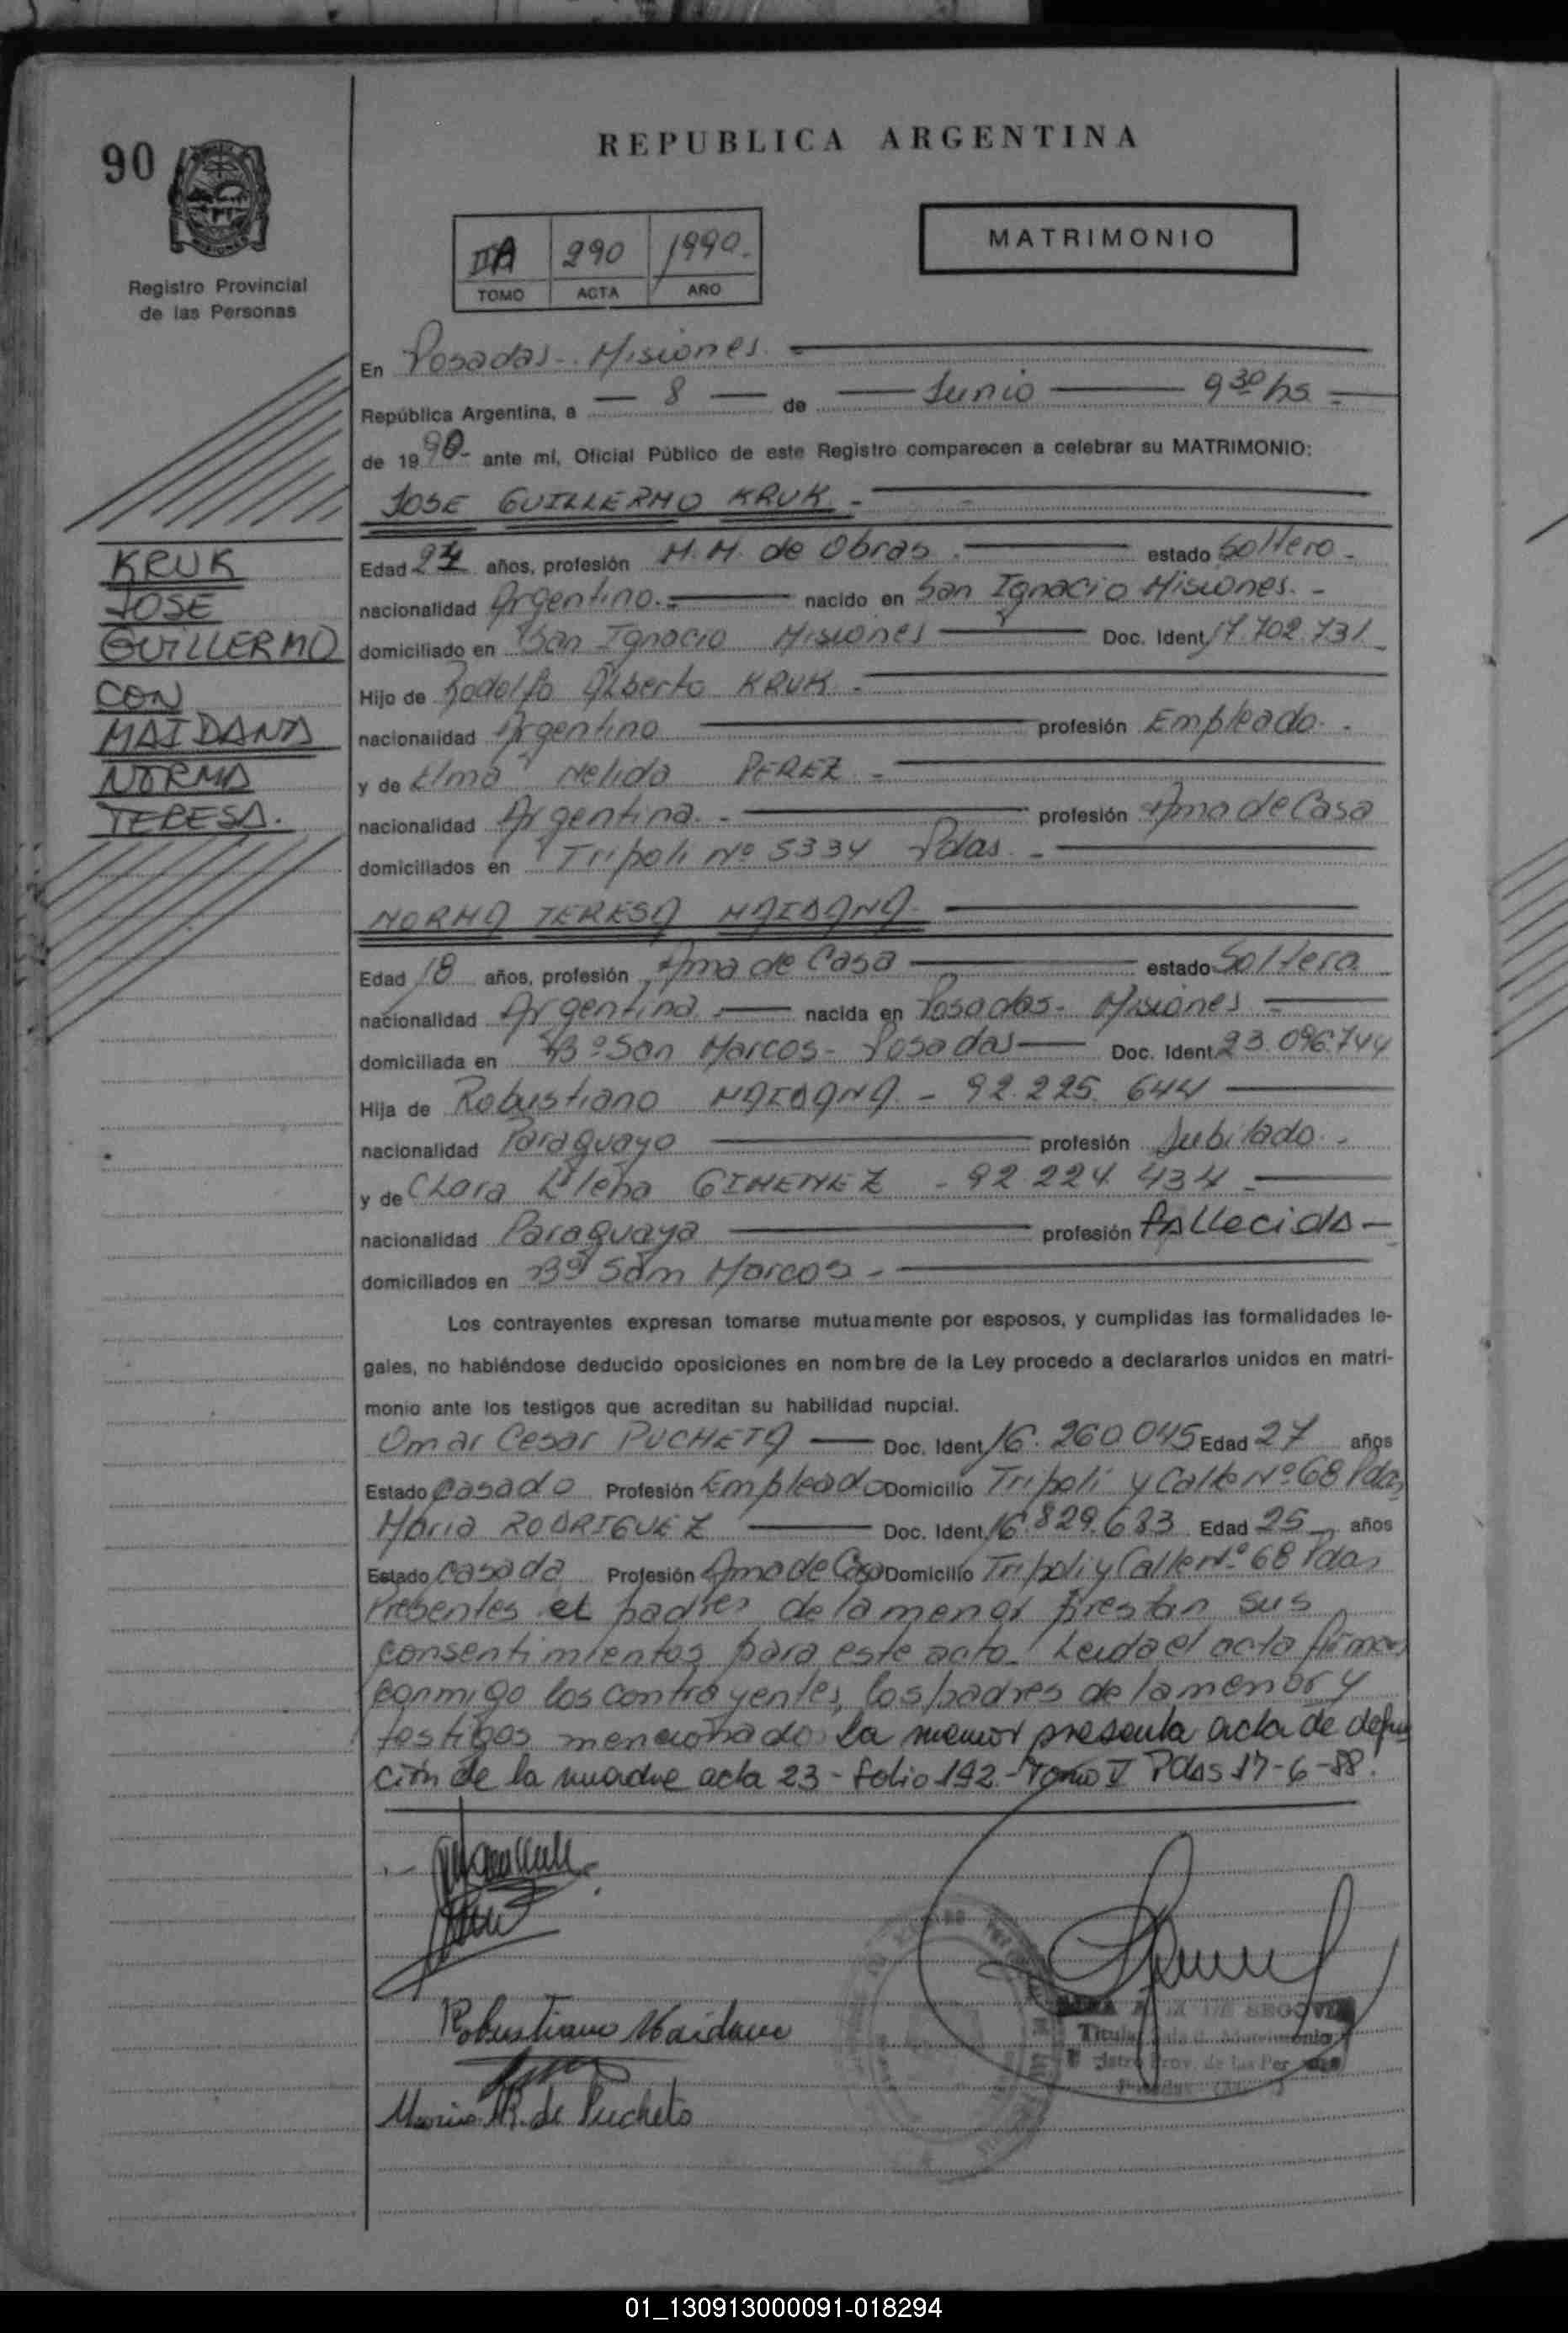 90
REPUBLICA ARGENTINA
MISIONES
Registro Provincial
de las Personas
IIA 290 1990.
TOMO ACTA AÑO
MATRIMONIO
En Posadas - Misiones.
República Argentina, a 8 de Junio 9 30 hs
de 1990- ante mí, Oficial Público de este Registro comparecen a celebrar su MATRIMONIO:
JOSE GUILLERMO KRUK.-
KRUK
JOSE
GUILLERMO
CON
MAIDANA
NORMA
TERESA.
Edad 24 años, profesión M.M. de Obras. estado Soltero -
nacionalidad Argentino.- nacido en San Ignacio Misiones. -
domiciliado en San Ignacio Misiones Doc. Ident. 17.702.731
Hijo de Rodolfo Alberto KRUK.
nacionalidad Argentino profesión Empleado.
y de Elma Nelida PEREZ -
nacionalidad Argentina.- profesión Ama de Casa
domiciliados en Tripoli Nº 5334 Pdas. -
NORMA TERESA MAIDANA
Edad 18 años, profesión Ama de Casa estado Soltera
nacionalidad Argentina. nacida en Posadas- Misiones
domiciliada en Bº San Marcos- Posadas Doc. Ident. 23.096.744
Hija de Robustiano MAIDANA - 92.225.644
nacionalidad Paraguayo profesión Jubilado. -
y de Clara Elena GIMENEZ - 92.224.434 -
nacionalidad Paraguaya profesión Fallecida -
domiciliados en Bº San Marcos -
Los contrayentes expresan tomarse mutuamente por esposos, y cumplidas las formalidades le-
gales, no habiéndose deducido oposiciones en nombre de la Ley procedo a declararlos unidos en matri-
monio ante los testigos que acreditan su habilidad nupcial.
Omar Cesar PUCHETA Doc. Ident. 16.260.045 Edad 27 años
Estado Casado Profesión Empleado Domicilio Tripoli y Calle Nº 68 Pdas
Maria RODRIGUEZ Doc. Ident. 16.829.683 Edad 25 años
Estado Casada Profesión Ama de Casa Domicilio Tripoli y Calle Nº 68 Pdas
Presentes el padres de la menor prestan sus
consentimientos para este acto. Leida el acta firman
conmigo los contrayentes, los padres de la menor y
testigos mencionado la menor presenta acta de defun
ción de la madre acta 23 - folio 192 - Tomo V Pdas 17-6-88.
Robustiano Maidana
Maria R. de Pucheta
DE SEGOVIA
Titular Sala de Matrimonio
Prov. de las Per
01_130913000091-018294